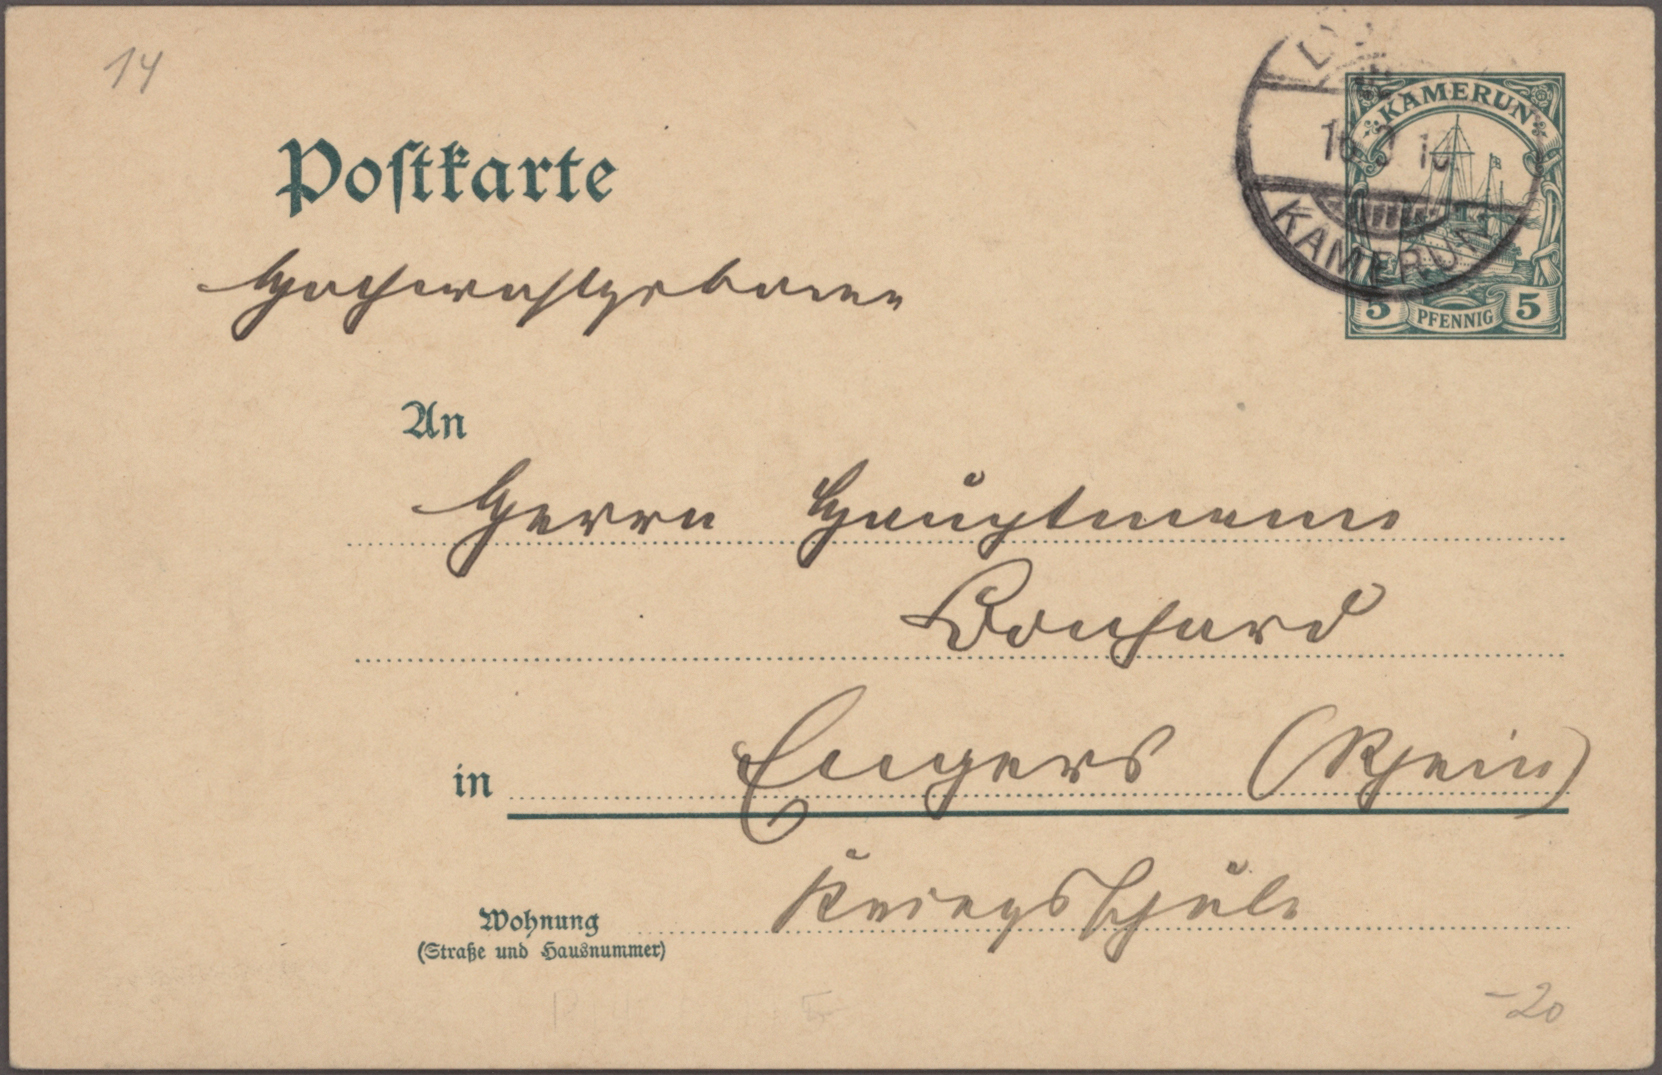 14
KAMERUN
KAMERUN
5 PFENNIG 5
Postkarte
Hochwohlgeboren
An
Herrn Hauptmann
Bonhard
in Engers (Rhein)
Kriegsschule
Wohnung
(Straße und Hausnummer)
-20